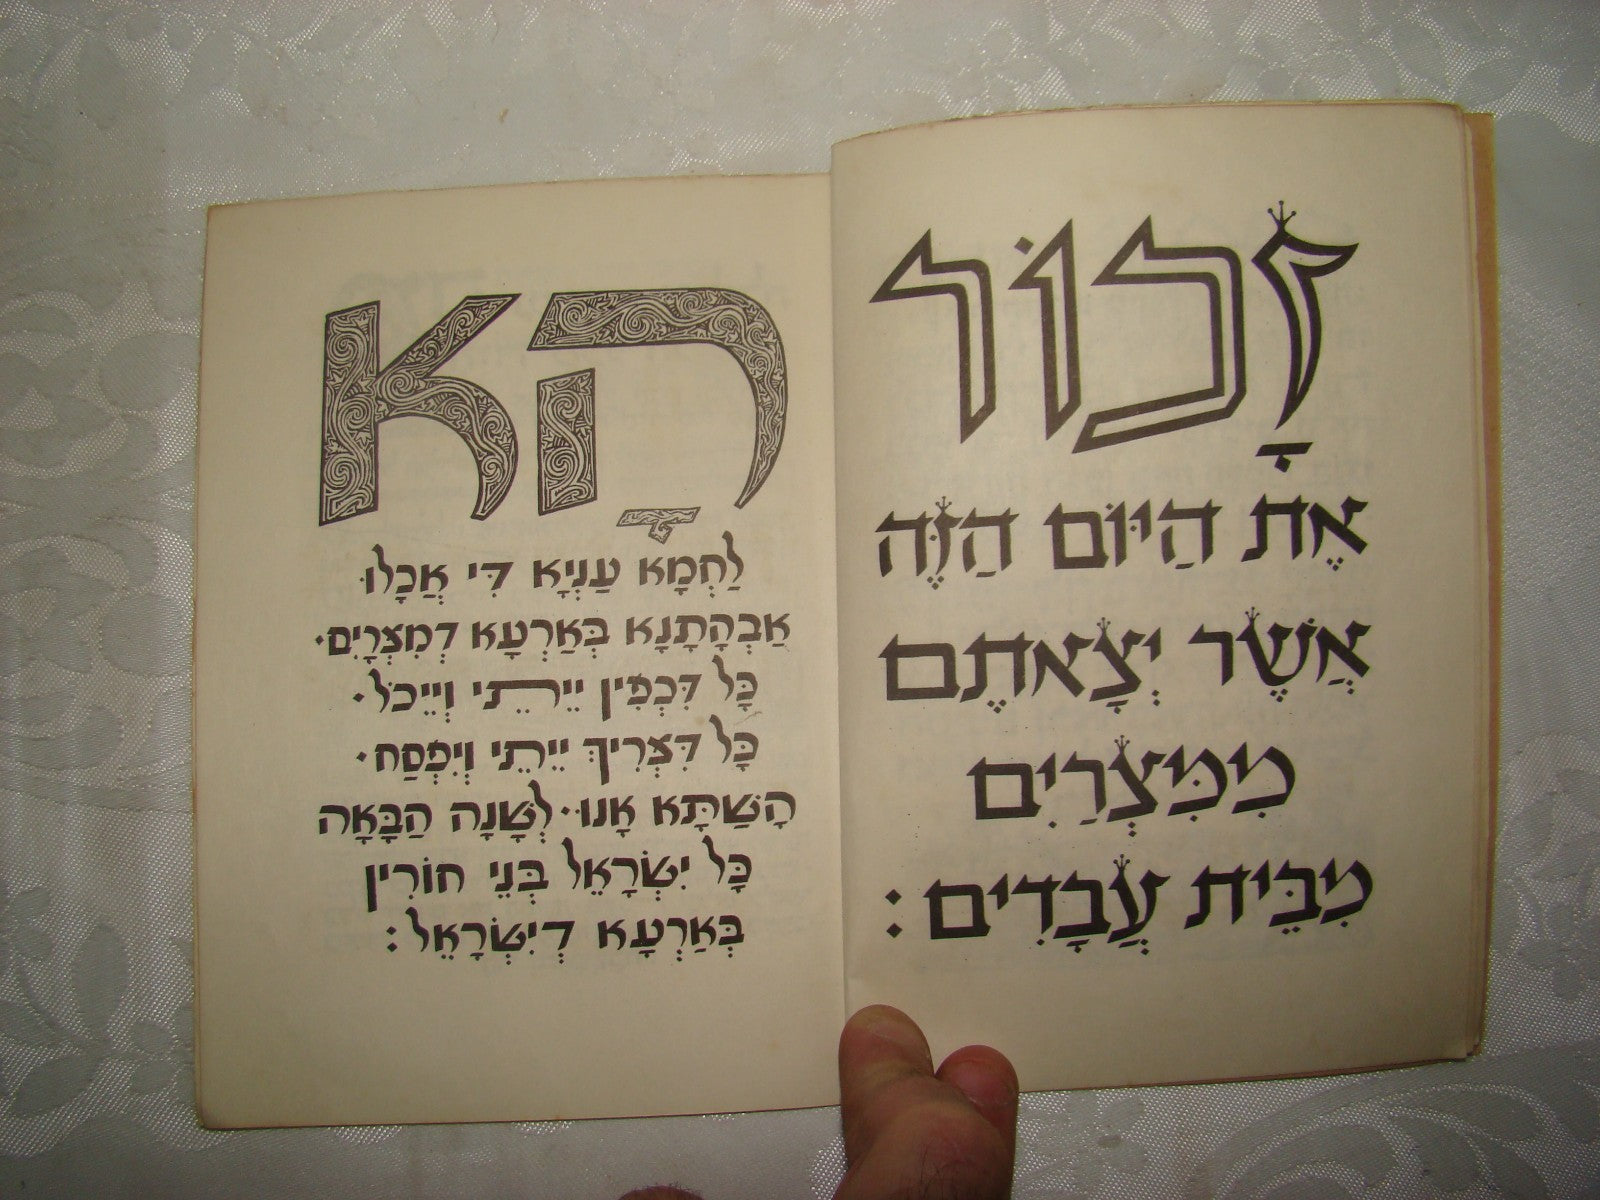 זָכוֹר
אֶת הַיּוֹם הַזֶּה
אֲשֶׁר יְצָאתֶם
מִמִּצְרַיִם
מִבֵּית עֲבָדִים:
הָא
לַחְמָא עַנְיָא דִּי אֲכָלוּ
אַבְהָתָנָא בְּאַרְעָא דְמִצְרָיִם·
כָּל דִּכְפִין יֵיתֵי וְיֵיכֹל·
כָּל דִּצְרִיךְ יֵיתֵי וְיִפְסַח·
הָשַׁתָּא אָנוּ· לְשָׁנָה הַבָּאָה
כָּל יִשְׂרָאֵל בְּנֵי חוֹרִין
בְּאַרְעָא דְיִשְׂרָאֵל: